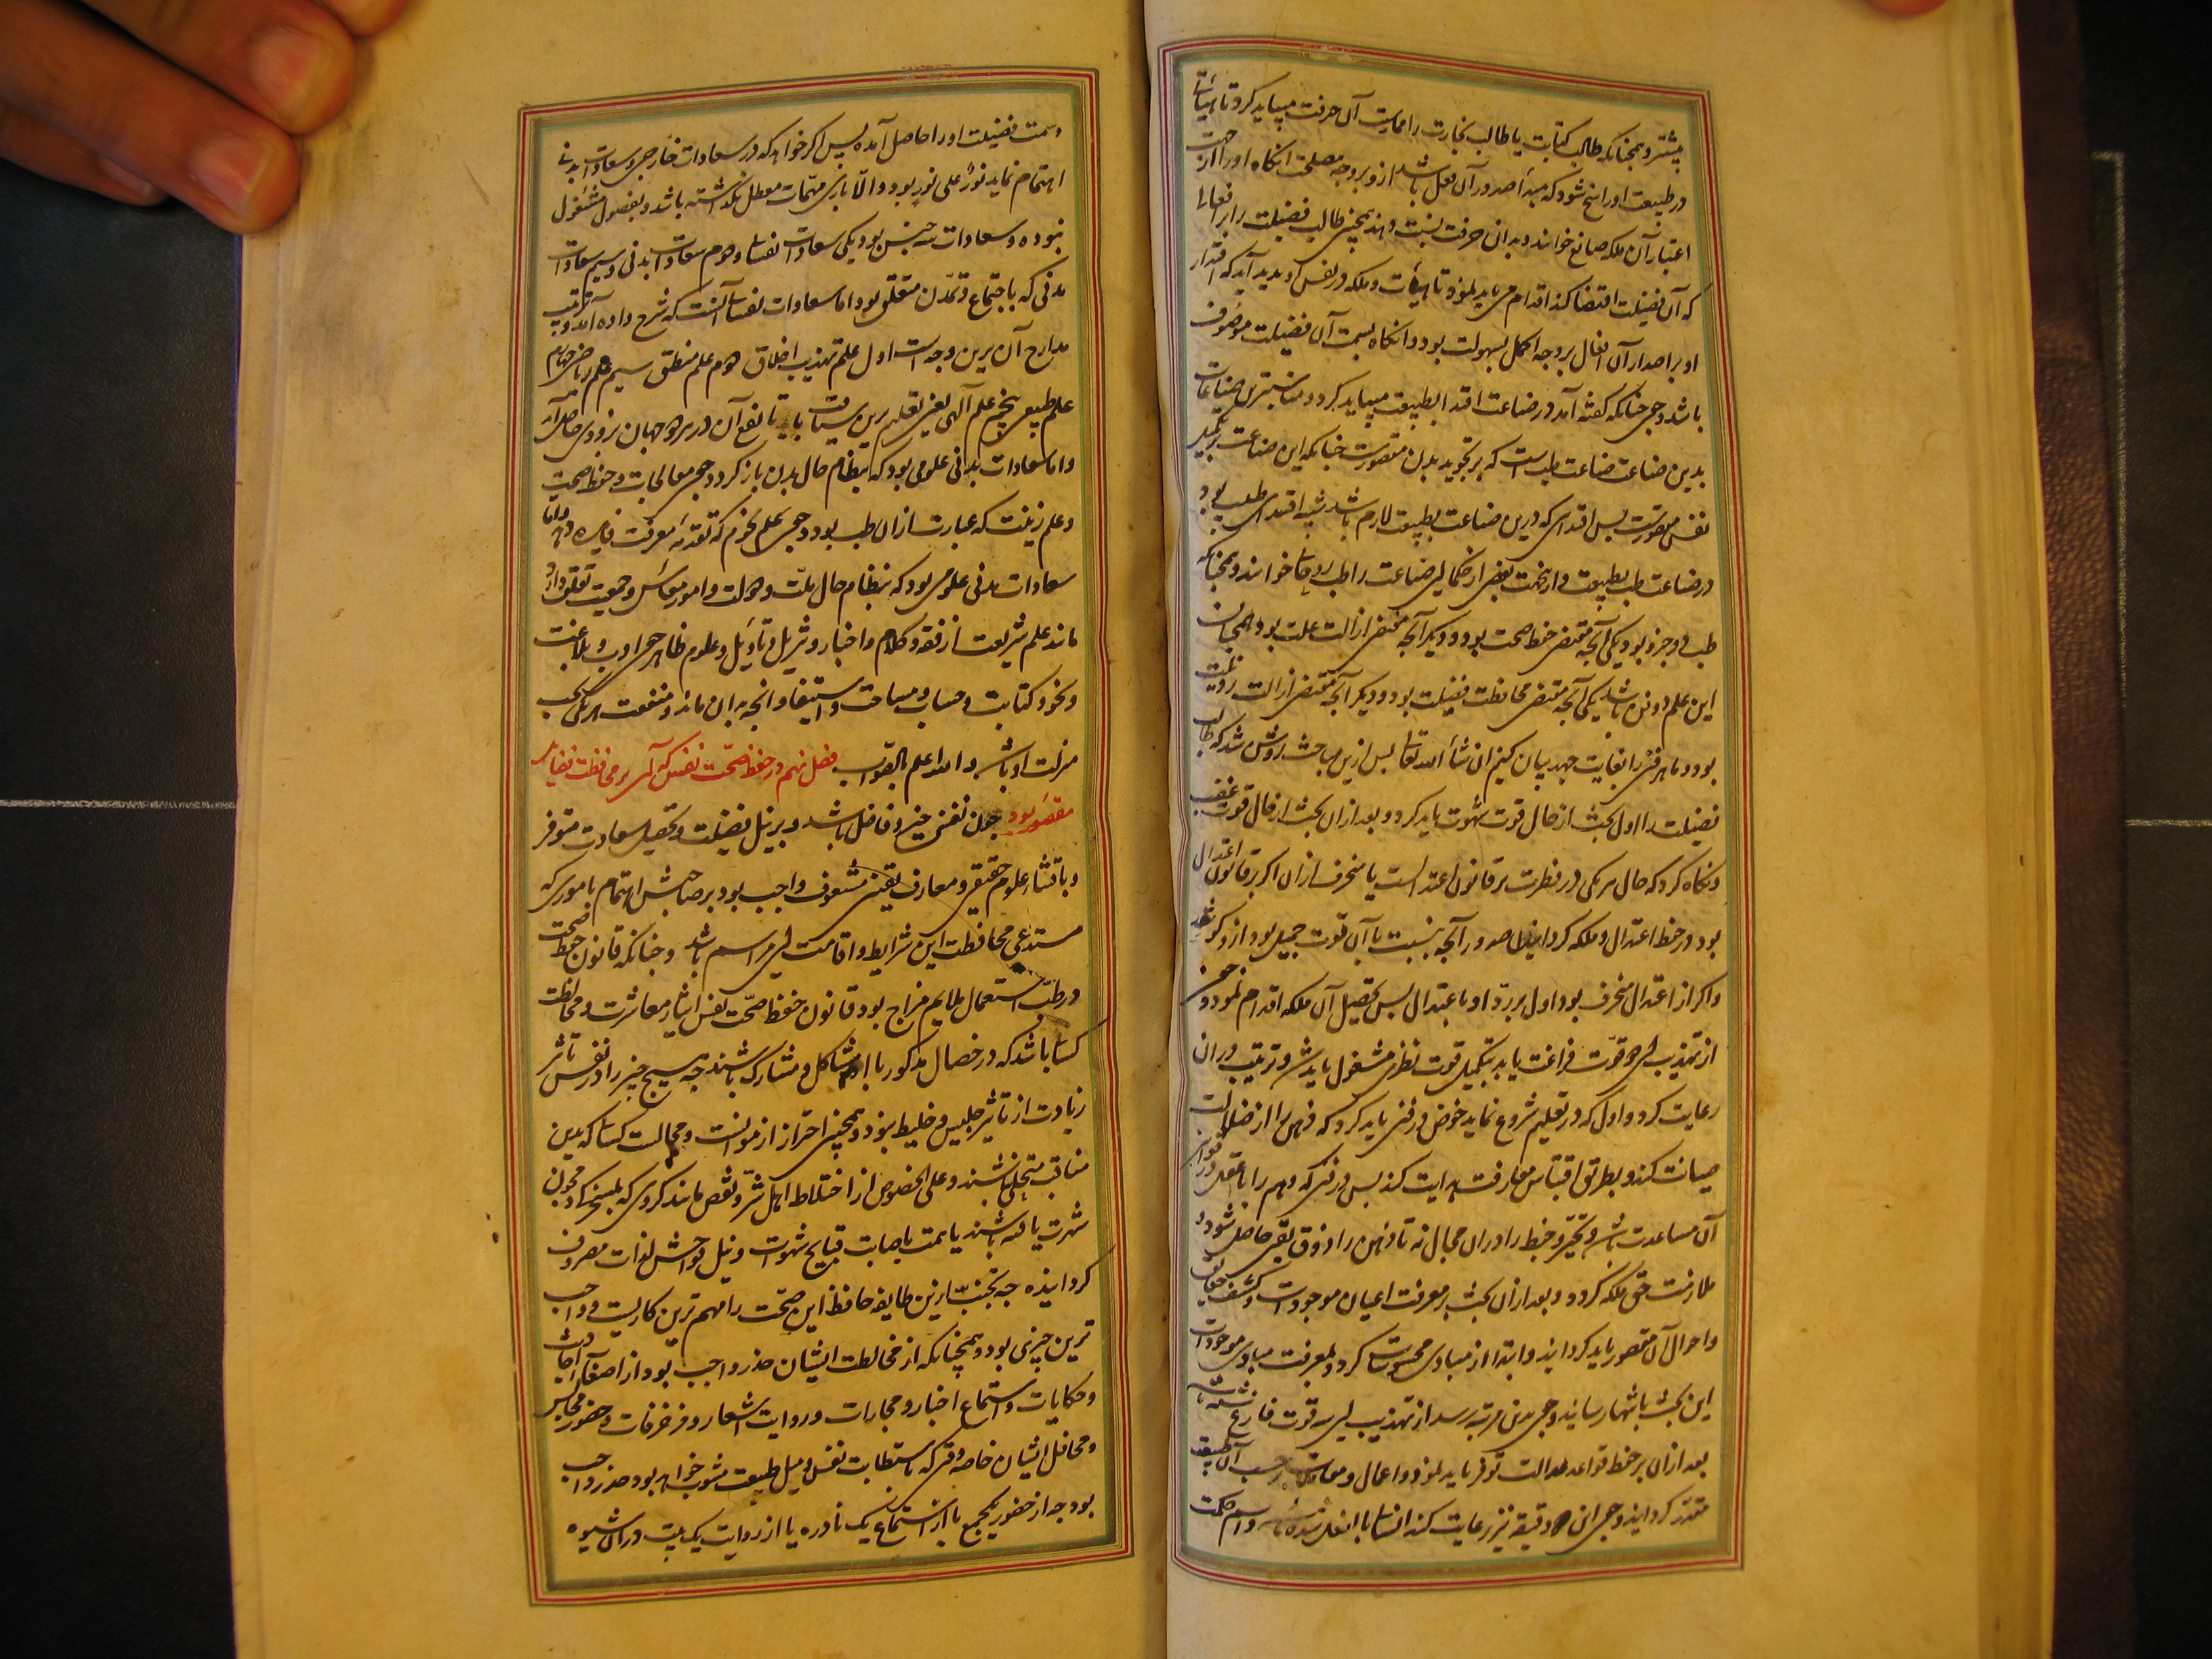 پیشتر و همچنانکه طالب کتابت یا طالب نجارت را ممارست آن حرفت میباید کرد تا هیأتی
در طبیعت او راسخ شود که مبدأ صدور آن فعل باشد ازو بر وجه مصلحت انکاه او را از جهت
اعتبار آن ملکه صانع خوانند و بدان حرفت نسبت دهند همچنین طالب فضیلت را بر افعالی
که آن فضیلت اقتضا کند اقدام می باید نمود تا هیأت و ملکه در نفس او پدید آید که اقتدار
او بر اصدار آن افعال بر وجه اکمل بسهولت بود و انکاه بسمت آن فضیلت موصوف
باشد و چون چنانکه کفته آمد در صناعت اقتدا بطبیعت میباید کرد و مناسبترین صناعات
بدین صناعت صناعت طب است که بر تجوید بدن مقصورست چنانکه این صناعت بر تکمیل
نفس مقصورست پس اقتدائی که درین صناعت بطبیعت لازم باشد شبیه اقتدای طبیب بود
در صناعت طب بطبیعت و از اینجهت بعضی از حکما این صناعت را طب روحانی خوانند و همچنانکه
طب دو جزو بود یکی آنچه مقتضی حفظ صحت بود و دیکر آنچه مقتضی ازالت علت بود همچنان
این علم دو فن باشد یکی آنچه مقتضی محافظت فضیلت بود و دیکر آنچه مقتضی ازالت رذیلت
بود و ما هر فنی را بغایت جهد بیان کنیم ان شاء الله تعالی پس ازین مباحث روشن شد که طالب
فضیلت را اول بحث از حال قوت شهوت باید کرد و بعد ازان بحث از حال قوت غضب
و نکاه کرد که حال هر یکی در فطرت بر قانون اعتدالست یا منحرف ازان اکر بر قانون اعتدال
بود در حفظ اعتدال و ملکه کردانیدن صدور آنچه نسبت با آن قوت جمیل بود ازو کوشد
و اکر از اعتدال منحرف بود اول بر رد او با اعتدال پس بتحصیل آن ملکه اقدام نمود و چون
از تهذیب این دو قوت فراغت یابد بتکمیل قوت نظری مشغول باید شد و ترتیب دران
رعایت کرد و اول که در تعلیم شروع نماید خوض در فنی باید کرد که ذهن را از ضلالت
صیانت کند و بطریق اقتباس معارف هدایت کند پس در فنی که وهم را با عقل در قوانین
آن مساعدت باشد و تحیر و خبط را دران مجال نه تا ذهن را ذوق یقین حاصل شود و
ملازمت حق ملکه کردد و بعد ازان بحث بر معرفت اعیان موجودات و کشف حقایق
و احوال آن مقصور باید کردانید و ابتدا از مبادی محسوسات کرد و بمعرفت مبادی موجودات
این بحث بانتها رسانید و چون بدین مرتبه رسد از تهذیب این سه قوت فارغ شده باشد
بعد ازان بر حفظ قواعد عدالت توفر باید نمود و اعمال و معاملات بر حسب آن طبیعت
مقدر کردانید و چون این دقیقه نیز رعایت کند انسانی بالفعل شده باشد و اسم حکمت
و سمت فضیلت او را حاصل آمده پس اکر خواهد که در سعادات خارجی و سعادات بدنی
اهتمام نماید نور علی نور بود و الا باری مهمات معطل نکذاشته باشد و بفضول مشغول
نبوده و سعادات سه جنس بود یکی سعادات نفسانی و دوم سعادات بدنی و سیم سعادات
مدنی که باجتماع و تمدن متعلق بود اما سعادات نفسانی آنست که شرح داده آمد و ترتیب
مدارج آن برین وجه است اول علم تهذیب اخلاق دوم علم منطق سیم علم ریاضی چهارم
علم طبیعی پنجم علم آلهی یعنی تعلیم برین سیاقت باید تا نفع آن در هر دو جهان بزودی حاصل آمد
و اما سعادات بدنی علومی بود که بنظام حال بدن باز کردد چون معالجات و حفظ صحت
و علم زینت که عبارت ازان طب بود و چون علم نجوم که تقدمه معرفت فایده دهد و اما
سعادات مدنی علومی بود که بنظام حال ملت و دولت و امور معاش و جمعیت تعلق دارد
مانند علم شریعت از فقه و کلام و اخبار و تنزیل و تاویل و علوم ظاهر چون ادب و بلاغت
و نحو و کتابت و حساب و مساحت و استیفا و انچه بدان ماند و منفعت هر یکی بحسب
منزلت او باشد و الله اعلم بالصواب فصل نهم در حفظ صحت نفس که آن بر محافظت فضایل
مقصور بود چون نفس خیر و فاضل باشد و بر نیل فضیلت و تحصیل سعادت متوفر
و باقتناء علوم حقیقی و معارف یقینی مشعوف واجب بود بر صاحبش اهتمام باموری که
مستدعی محافظت این شرایط و اقامت این مراسم باشد و چنانکه قانون حفظ صحت
در طب استعمال ملایم مزاج بود قانون حفظ صحت نفس ایثار معاشرت و مخالطت
کسانی باشد که در خصال مذکور با او مشاکل و مشارک باشند چه هیچ چیز را در نفس تاثیر
زیادت از تاثیر جلیس و خلیط نبود و همچنین احتراز از موانست و مجالست کسانی که بدین
مناقب متحلی نباشند و علی الخصوص از اختلاط اهل شر و نقص مانند کروهی که بمسخرکی و مجون
شهرت یافته باشند یا همت باصابت قبایح شهوات و نیل فواحش لذات مصروف
کردانیده چه تجنب ازین طایفه حافظ این صحت را مهم ترین کاریست و واجب
ترین چیزی بود و همچنانکه از مخالطت ایشان حذر واجب بود از اصغا باحادیث
و حکایات و استماع اخبار و مجارات و روایت اشعار و مزخرفات و حضور مجالس
و محافل ایشان خاصه وقتی که باستطابت نفس و میل طبیعت مشوب خواهد بود حذر واجب
بود چه از حضور یک مجمع یا از استماع یک نادره یا از روایت یک بیت دران شیوه